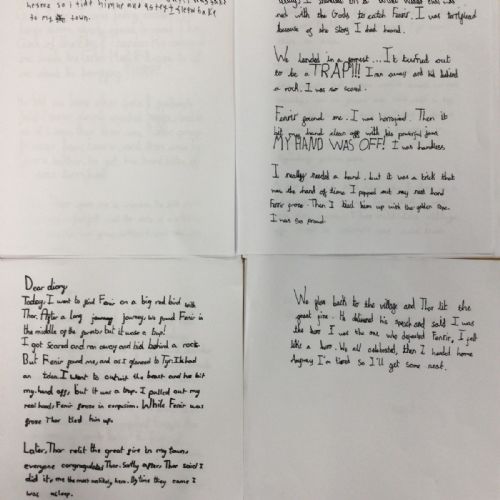 to my town.
met with the Gods to catch Fenrir. I was terrified
because of the story I had heard.
We landed in a forest... It turned out
to be a TRAP!!! I ran away and hid behind
a rock. I was so scared.
Fenrir found me. I was horrified. Then it
bit my hand clean off with his powerful jaws
MY HAND WAS OFF! I was handless
I really needed a hand, but it was a trick that
was the hand of time I popped out my real hand
Fenrir froze. Then I tied him up with the golden rope.
I was so proud.
Dear diary,
Today, I went to find Fenir on a big red bird with
Thor. After a long journey, we found Fenir in
the middle of the forest, but it was a trap!
I got scared and ran away and hid behind a rock.
But Fenir found me, and as I glanced to Tyr. I had
an idea. I went to outwit the beast and he bit
my hand off, but it was a trap. I pulled out my
real hand, Fenir froze in confusion. While Fenir was
froze Thor tied him up.
Later, Thor relit the great fire in my town,
everyone congragulated Thor. Softly after, Thor said I
did it, me the most unlikely, hero. By time they came I
was asleep.
We flew back to the village and Thor lit the
great fire. He delivered his speech and said I was
the hero I was the one who defeated Fenrir, I felt
like a hero. We all celebrated, then I headed home
Anyway I'm tired so I'll get some rest.